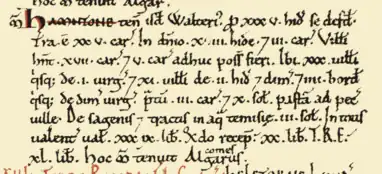 hoc M tenuit Algar.
M HAMNTONE ten isd Walteri'. p xxx v. hid se defd.
Tra. e xx v. car. In dnio. x. iii. hide. 7 iii. car. Villi
hnt. xvii. car. 7 v. car adhuc poss fieri. Ibi. xxx. uilli
qsq; de. i. uirg. 7 xi. uilli de. ii. hid 7 dim. 7 iiii. bord
qsq; de dim uirg. ptu. iii. car. 7 x. sol. pasta ad pec
uille. De sagenis 7 tractis in aq temisie. iii. sol. In totis
ualent ual. xxx ix. lib. Xdo recep. xx. lib. T.R.E.
comes
xl. lib. hoc M tenuit Algarus.